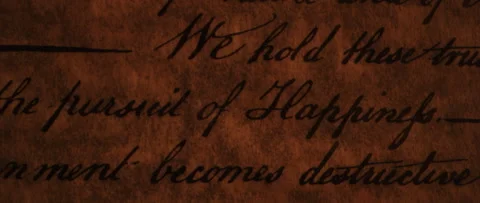 We hold these tru
the pursuit of Happiness.—
nment becomes destructive